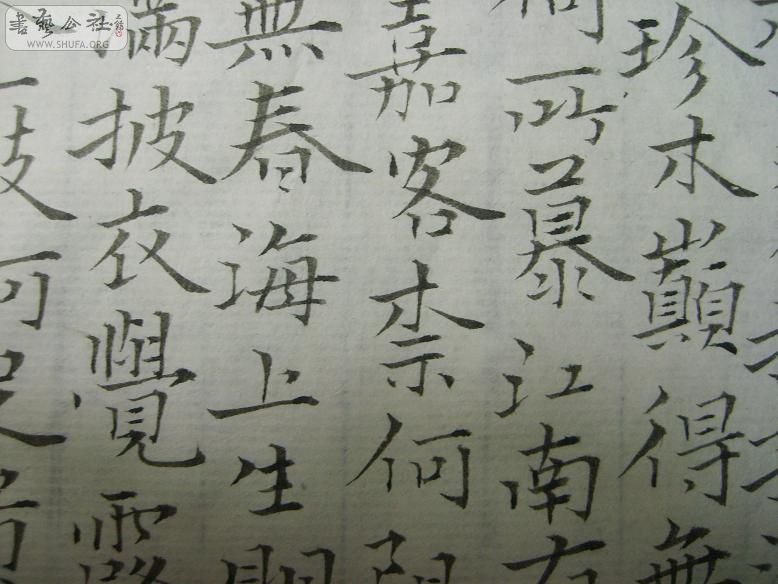 書藝公社
WWW.SHUFA.ORG
珍木巔得無
何所慕江南有
嘉客柰何阻
無春海上生明
滿披衣覺露